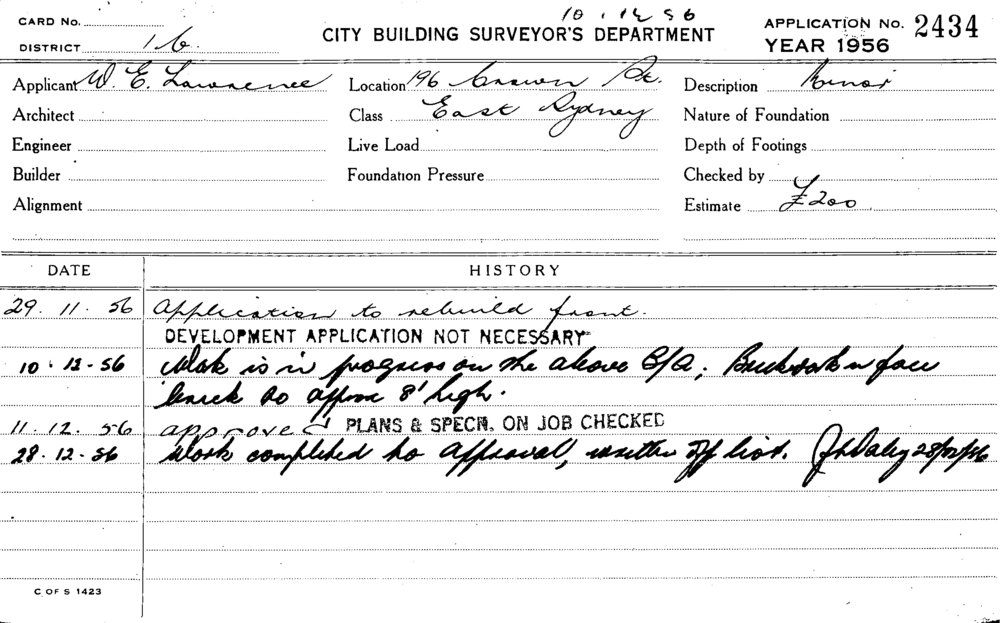 10.12.56
CARD No.
DISTRICT 16.
CITY BUILDING SURVEYOR'S DEPARTMENT
APPLICATION No. 2434
YEAR 1956
Applicant W. E. Lawrence
Location 196 Crown St.
Description Minor
Architect
Class East Sydney
Nature of Foundation
Engineer
Live Load
Depth of Footings
Builder
Foundation Pressure
Checked by
Alignment
Estimate £200
DATE HISTORY
29.11.56 Application to rebuild front.
DEVELOPMENT APPLICATION NOT NECESSARY
10.12.56 Work is in progress on the above B/A; Brickwork in face
brick to approx 8' high.
11.12.56 approved PLANS & SPECN. ON JOB CHECKED
28.12.56 Work completed to approval, written off list. J Daley 28/12/56
C OF S 1423